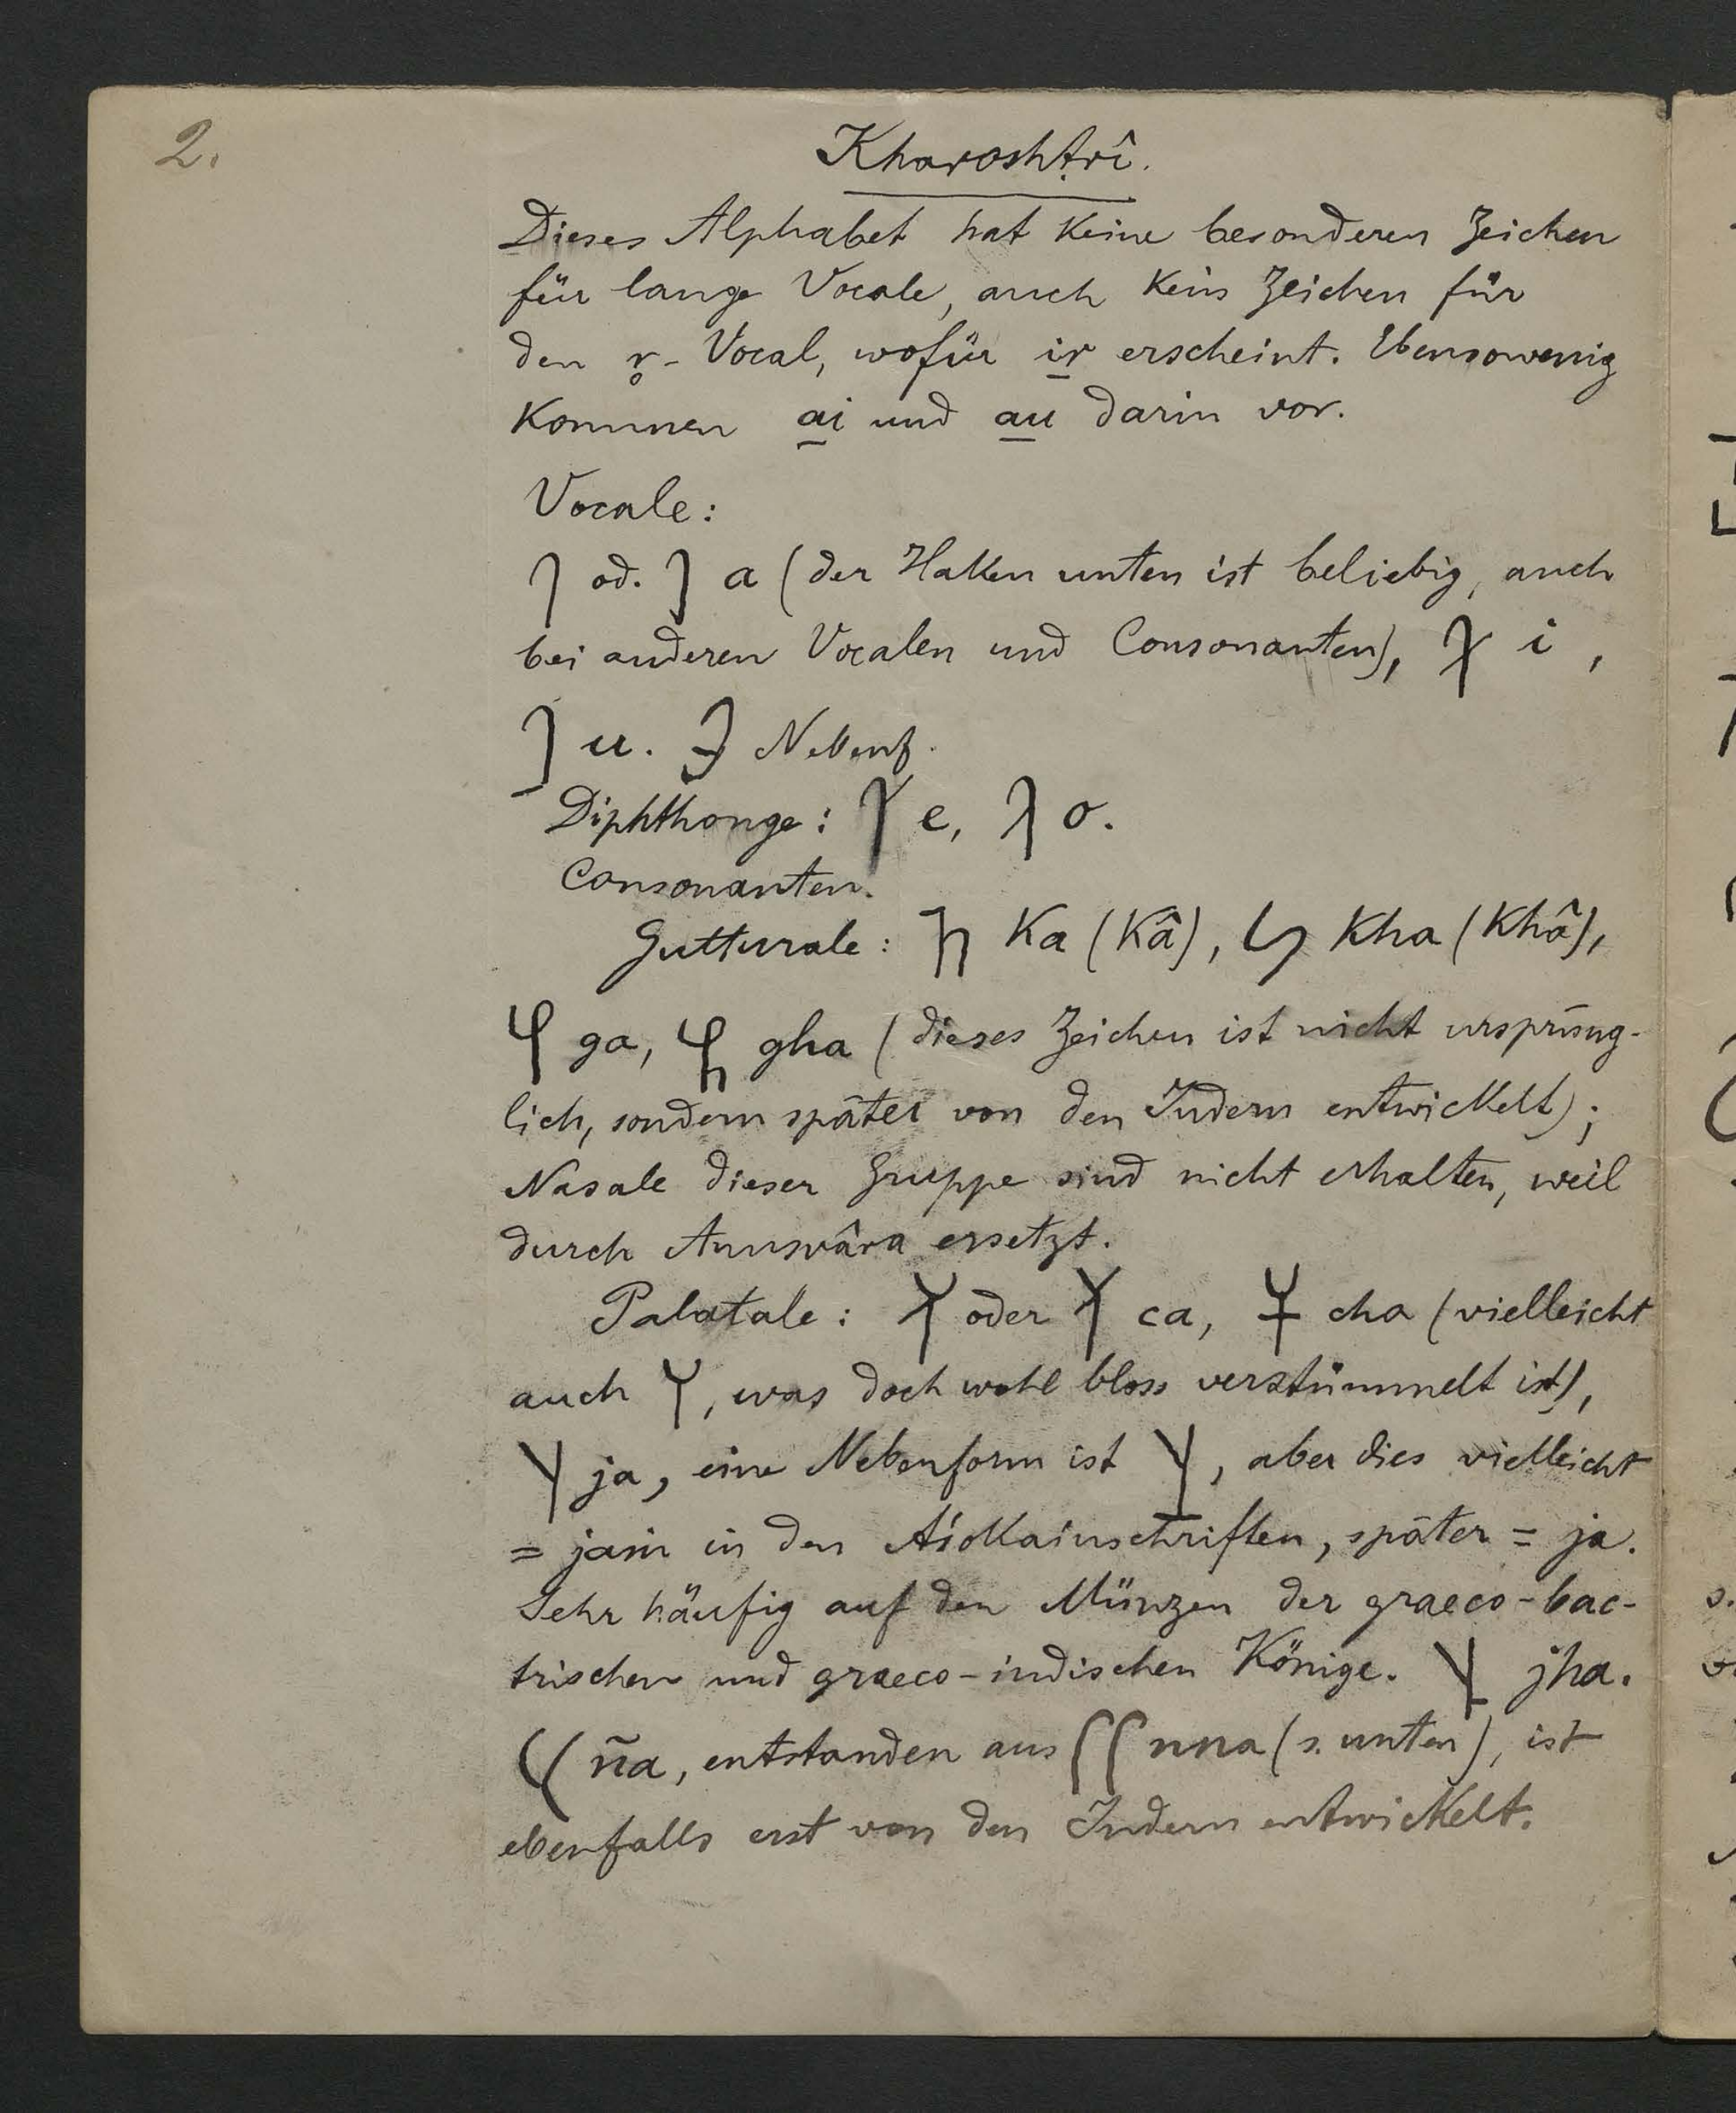 2.
Kharoshṭrî.
Dieses Alphabet hat keine besonderen Zeichen
für lange Vocale, auch kein Zeichen für
den r̥-Vocal, wofür ir erscheint. Ebensowenig
kommen ai und au darin vor.
Vocale:
𐨀 od. 𐨀 a (der Haken unten ist beliebig, auch
bei anderen Vocalen und Consonanten), 𐨀𐨁 i,
𐨀𐨂 u. 𐨀𐨂 Nebenf.
Diphthonge: 𐨀𐨅 e, 𐨀𐨆 o.
Consonanten.
Gutturale: 𐨐 ka (kâ), 𐨑 kha (khâ),
𐨒 ga, 𐨓 gha (dieses Zeichen ist nicht ursprüng-
lich, sondern später von den Indern entwickelt);
Nasale dieser Gruppe sind nicht erhalten, weil
durch Anusvâra ersetzt.
Palatale: 𐨕 oder 𐨕 ca, 𐨖 cha (vielleicht
auch 𐨖, was doch wohl bloss verstümmelt ist),
𐨗 ja, eine Nebenform ist 𐨗, aber dies vielleicht
= jaṁ in den Aśokainschriften, später = ja.
Sehr häufig auf den Münzen der graeco-bac-
trischen und graeco-indischen Könige. jha.
𐨙 ña, entstanden aus 𐨣𐨣 nna (s. unten), ist
ebenfalls erst von den Indern entwickelt.